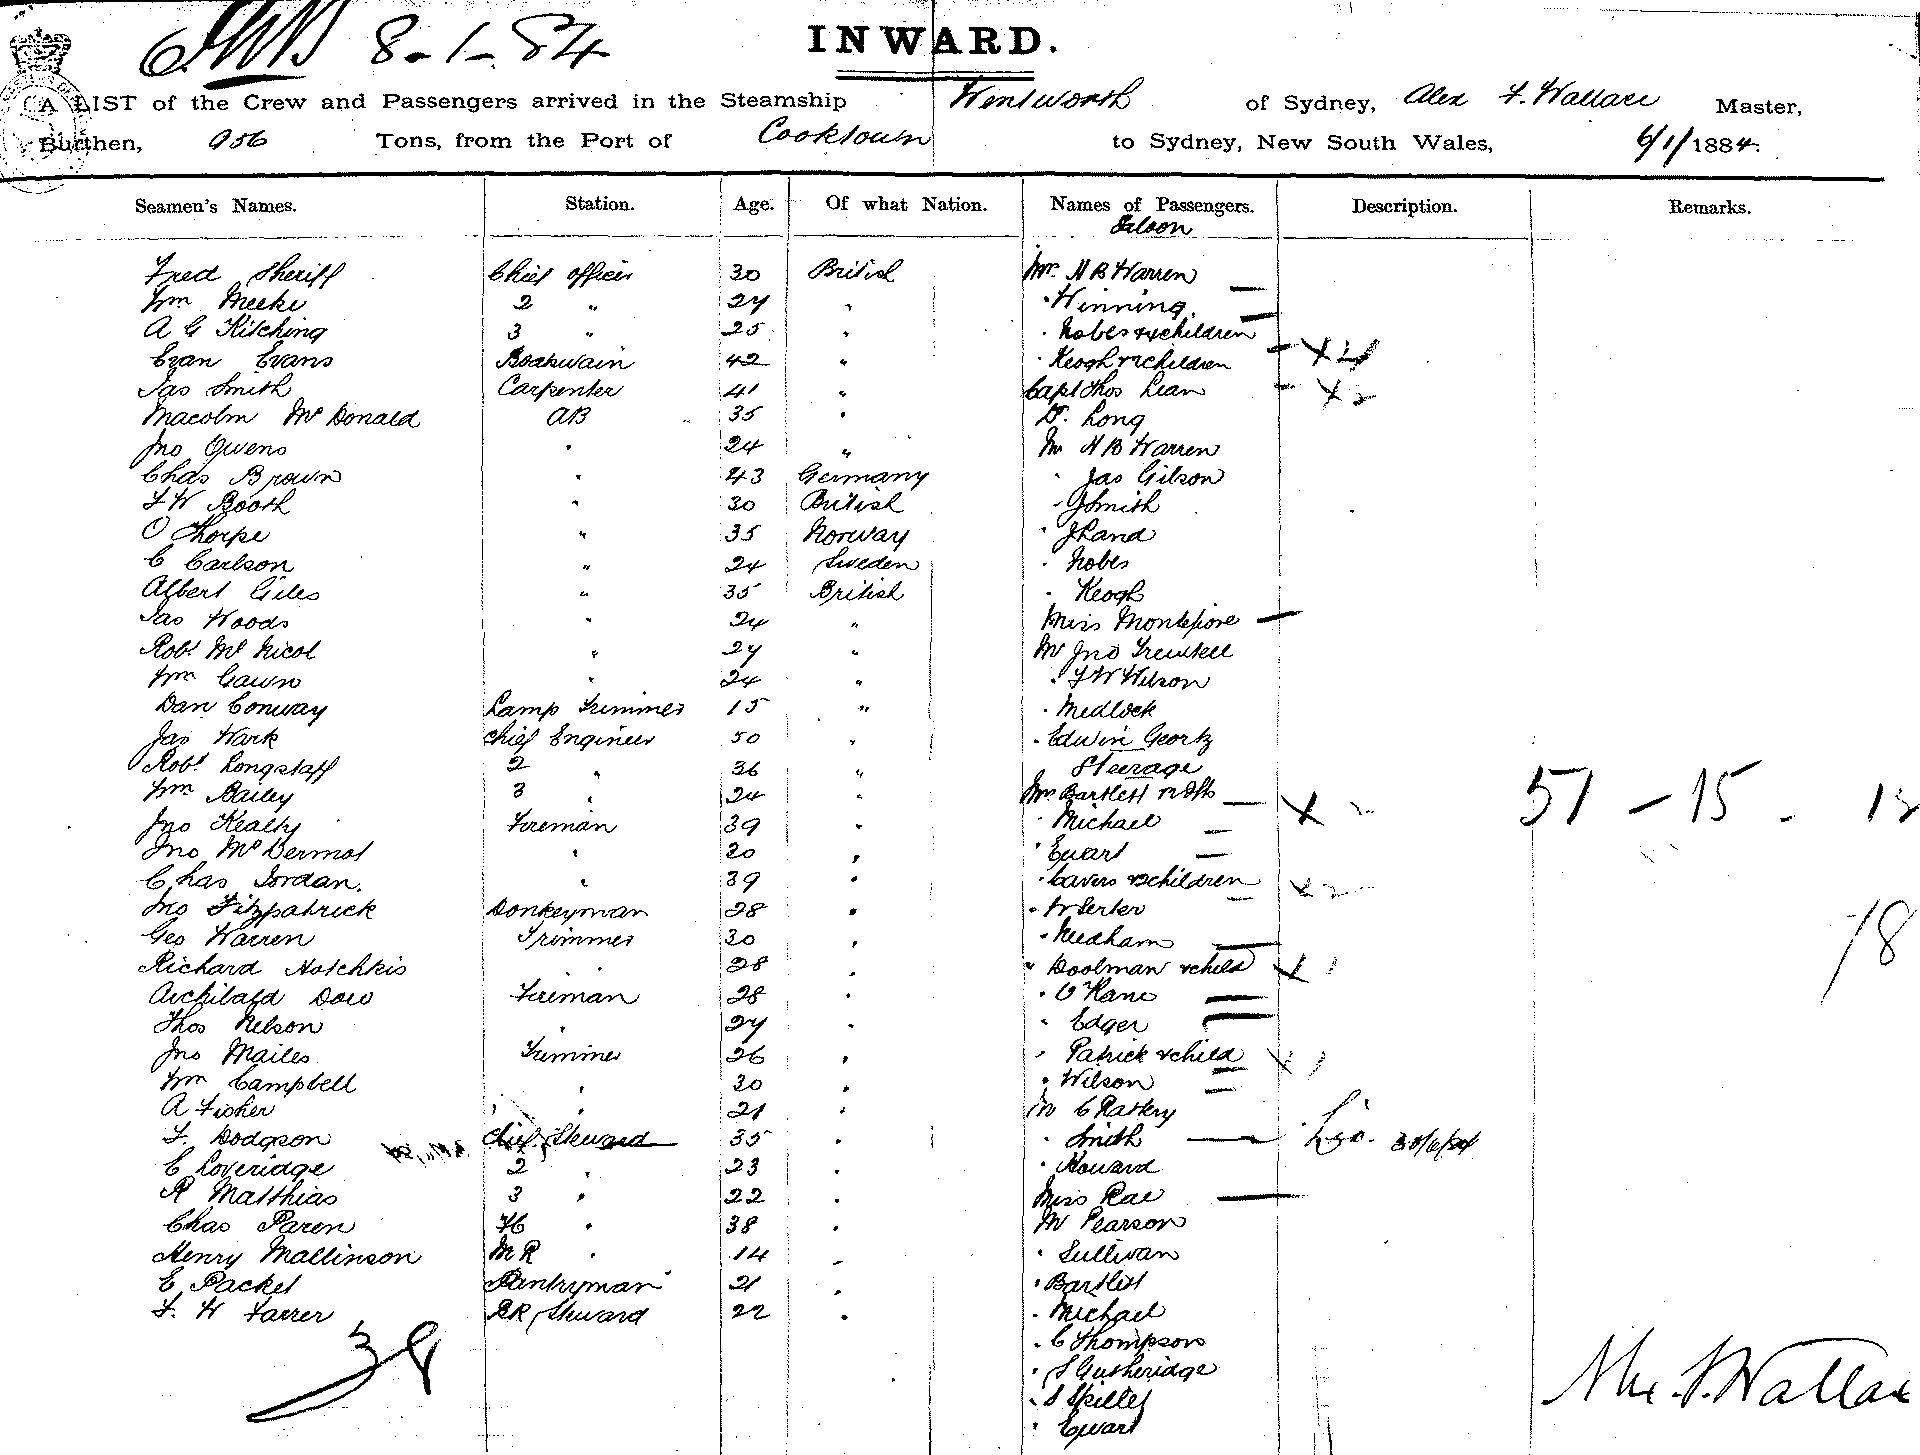 8-1-84
INWARD.
A LIST of the Crew and Passengers arrived in the Steamship Wentworth of Sydney, Alex F. Wallace Master,
Burthen, 956 Tons, from the Port of Cooktown to Sydney, New South Wales, 6/1/1884.
Seamen's Names. Station. Age. Of what Nation. Names of Passengers. Description. Remarks.
Saloon
Fred Sheriff Chief officer 30 British Mrs. N B Warren
Wm Meeke 2 " 27 " " Winning
A G Kitching 3 " 25 " " Nobes & 4 children
Evan Evans Boatswain 42 " " Keogh & 2 children X 4
Jas Smith Carpenter 41 " Capt Thos Lean X 2
Macolm McDonald AB 35 " Dr. Long
Jno Owens " 24 " Mr N B Warren
Chas Brown " 43 Germany " Jas Gilson
F W Booth " 30 British " J Smith
O Thorpe " 35 Norway " J Rand
C Carlson " 24 Sweden " Nobes
Albert Giles " 35 British " Keogh
Jas Woods " 24 " Miss Montefiore
Robt McNicol " 27 " Mr Jno
Wm Gawn " 24 " " F W Wilson
Dan Conway Lamp Trimmer 15 " " Medlock
Jas Wark Chief Engineer 50 " " Edwin Geortz
Robt Longstaff 2 " 36 " Steerage
Wm Bailey 3 " 24 " Mrs Bartlett X 2 51 - 15 -
Jno Kealty Fireman 39 " " Michael
Jno McDermot " 30 " " Ewart
Chas Jordan. " 39 " " Cavers & 2 children X 2
Jno Fitzpatrick Donkeyman 28 "
Geo Warren Trimmer 30 " " Needham 18
Richard Hotchkis " 28 " " Doolman & child X 1
Archibald Dow Fireman 28 " " O'Kane
Thos Nelson " 27 " " Edger
Jno Mailes Trimmer 26 " " Patrick & child X 1
Wm Campbell " 30 " " Wilson
A Fisher " 21 " Mr C Rattery
F. Dodgson Chief Steward 35 " " Smith
C Loveridge 2 " 23 " " Howard
R Matthias 3 " 22 " Miss Rae
Chas Paren FC " 38 " Mr Pearson
Henry Mallinson MR " 14 " " Sullivan
E Packet Pantryman 21 " " Bartlett
F. H Farrer RR Steward 22 " " Michael
38 " C Thompson
" S Gutheridge
" S Skillet
" Ewart
Alex. F. Wallace